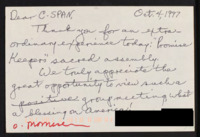 Dear C-SPAN, Oct. 4, 1997
Thank you for an extra
ordinary experience today: "Promise
Keeper" sacred assembly.
We truly appreciate the
great opportunity to view such a
positive group meeting. What
a blessing on America!